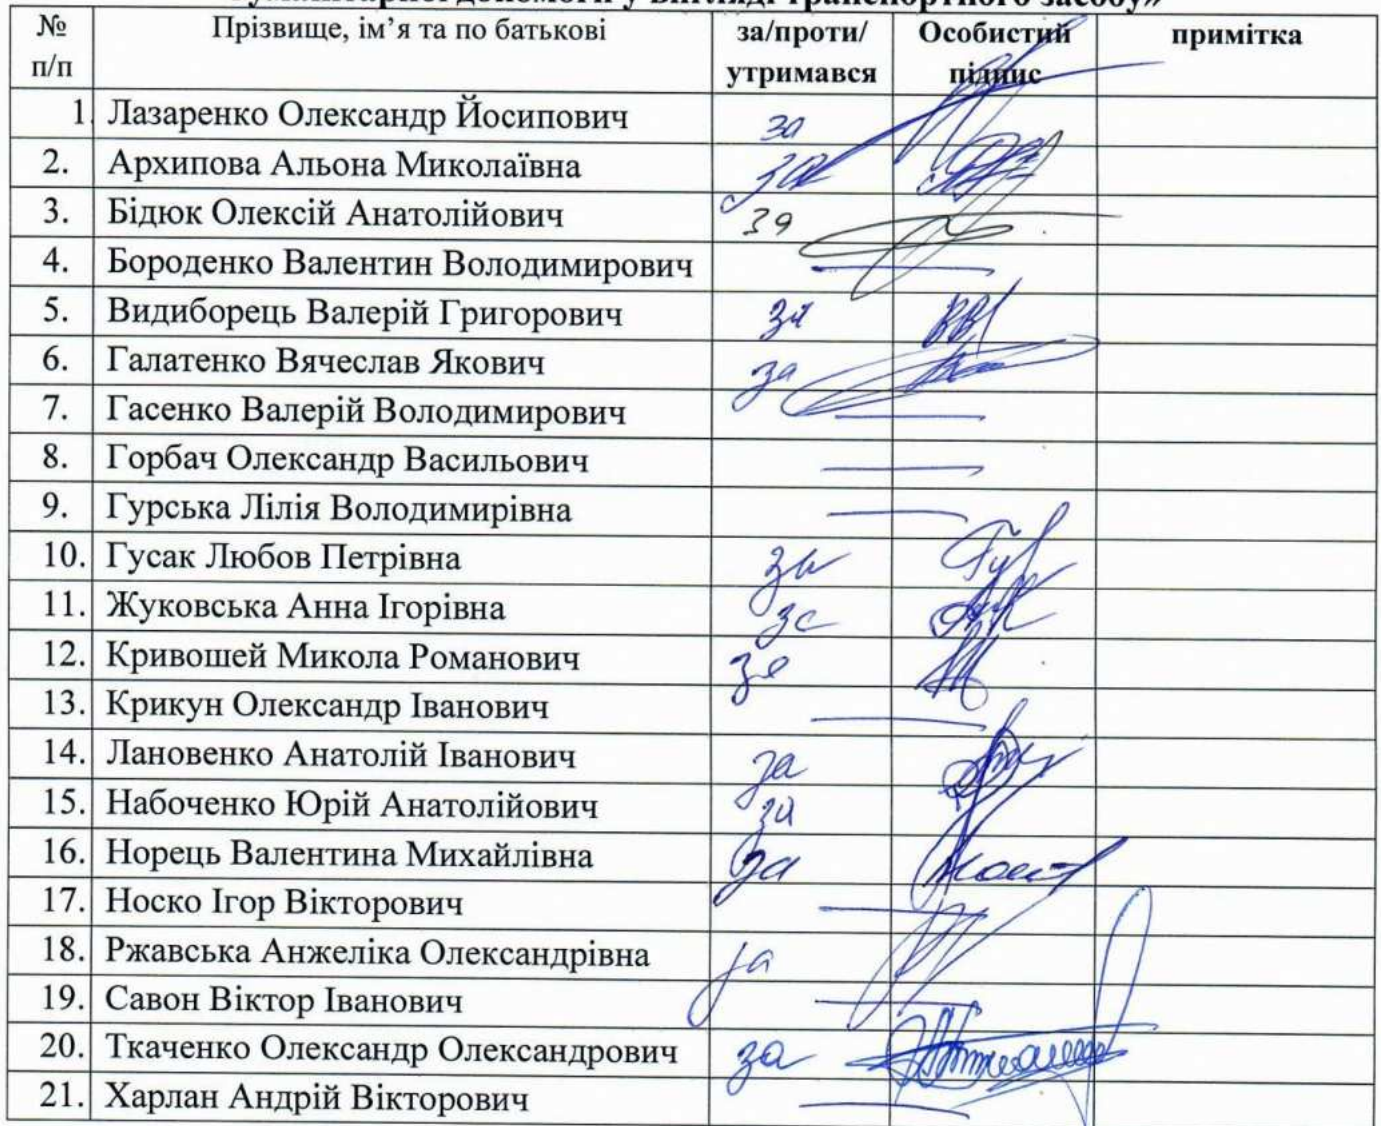 гуманітарної допомоги у вигляді транспортного засобу»
№ п/п Прізвище, ім’я та по батькові за/проти/ утримався Особистий підпис примітка
1. Лазаренко Олександр Йосипович за
2. Архипова Альона Миколаївна за
3. Бідюк Олексій Анатолійович за
4. Бороденко Валентин Володимирович
5. Видиборець Валерій Григорович за
6. Галатенко Вячеслав Якович за
7. Гасенко Валерій Володимирович
8. Горбач Олександр Васильович
9. Гурська Лілія Володимирівна
10. Гусак Любов Петрівна за
11. Жуковська Анна Ігорівна за
12. Кривошей Микола Романович за
13. Крикун Олександр Іванович
14. Лановенко Анатолій Іванович за
15. Набоченко Юрій Анатолійович за
16. Норець Валентина Михайлівна за
17. Носко Ігор Вікторович
18. Ржавська Анжеліка Олександрівна за
19. Савон Віктор Іванович
20. Ткаченко Олександр Олександрович за
21. Харлан Андрій Вікторович